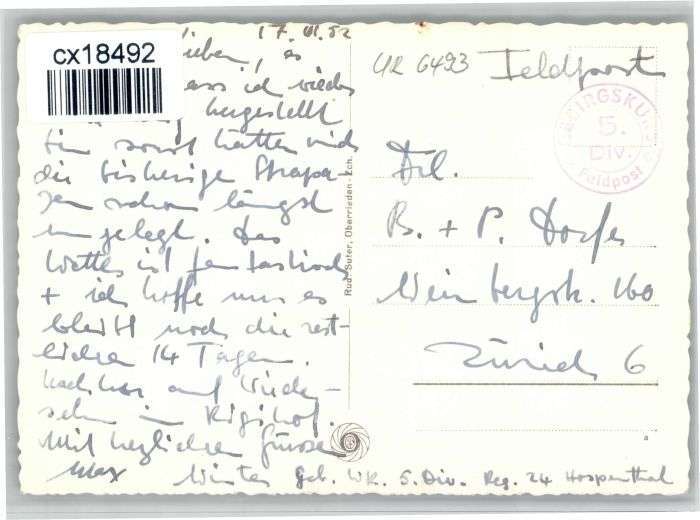 cx18492
17. VI. 52
ieben, es
dass ich wieder
hergestellt
bin sonst hätten mich
die bisherige Strapa-
zen schon längst
umgelegt. Das
Wetter ist fantastisch
+ ich hoffe nur es
bleibt noch die rest-
lichen 14 Tagen.
Nachher auf Wieder-
sehn im Rigihof.
Mit herzlichen Grüssen
Max
Winter Geb. WK. 5. Div. Reg. 24 Hospenthal
Rud. Suter, Oberrieden-Zch.
UR 6493 Feldpost
GEBIRGSKURS
5.
Div.
Feldpost
Frl.
B. + P. Dorfer
Weinbergstr. 160
Zürich 6